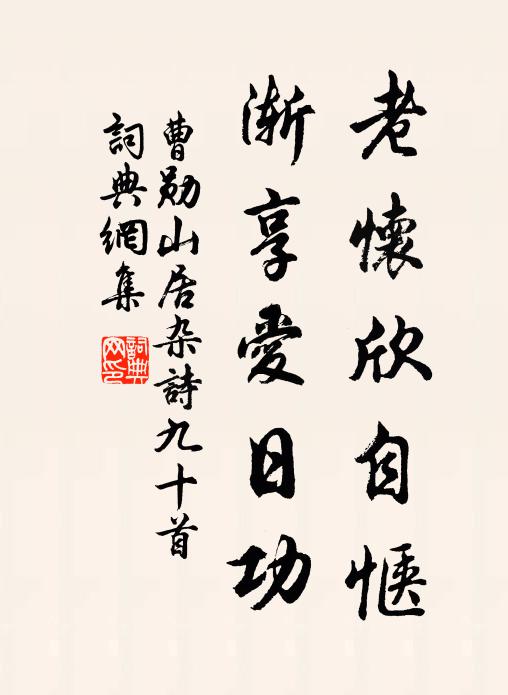 老懷欣自惬
漸享愛日功
曹勋山居杂詩九十首
詞典網集
詞典網印